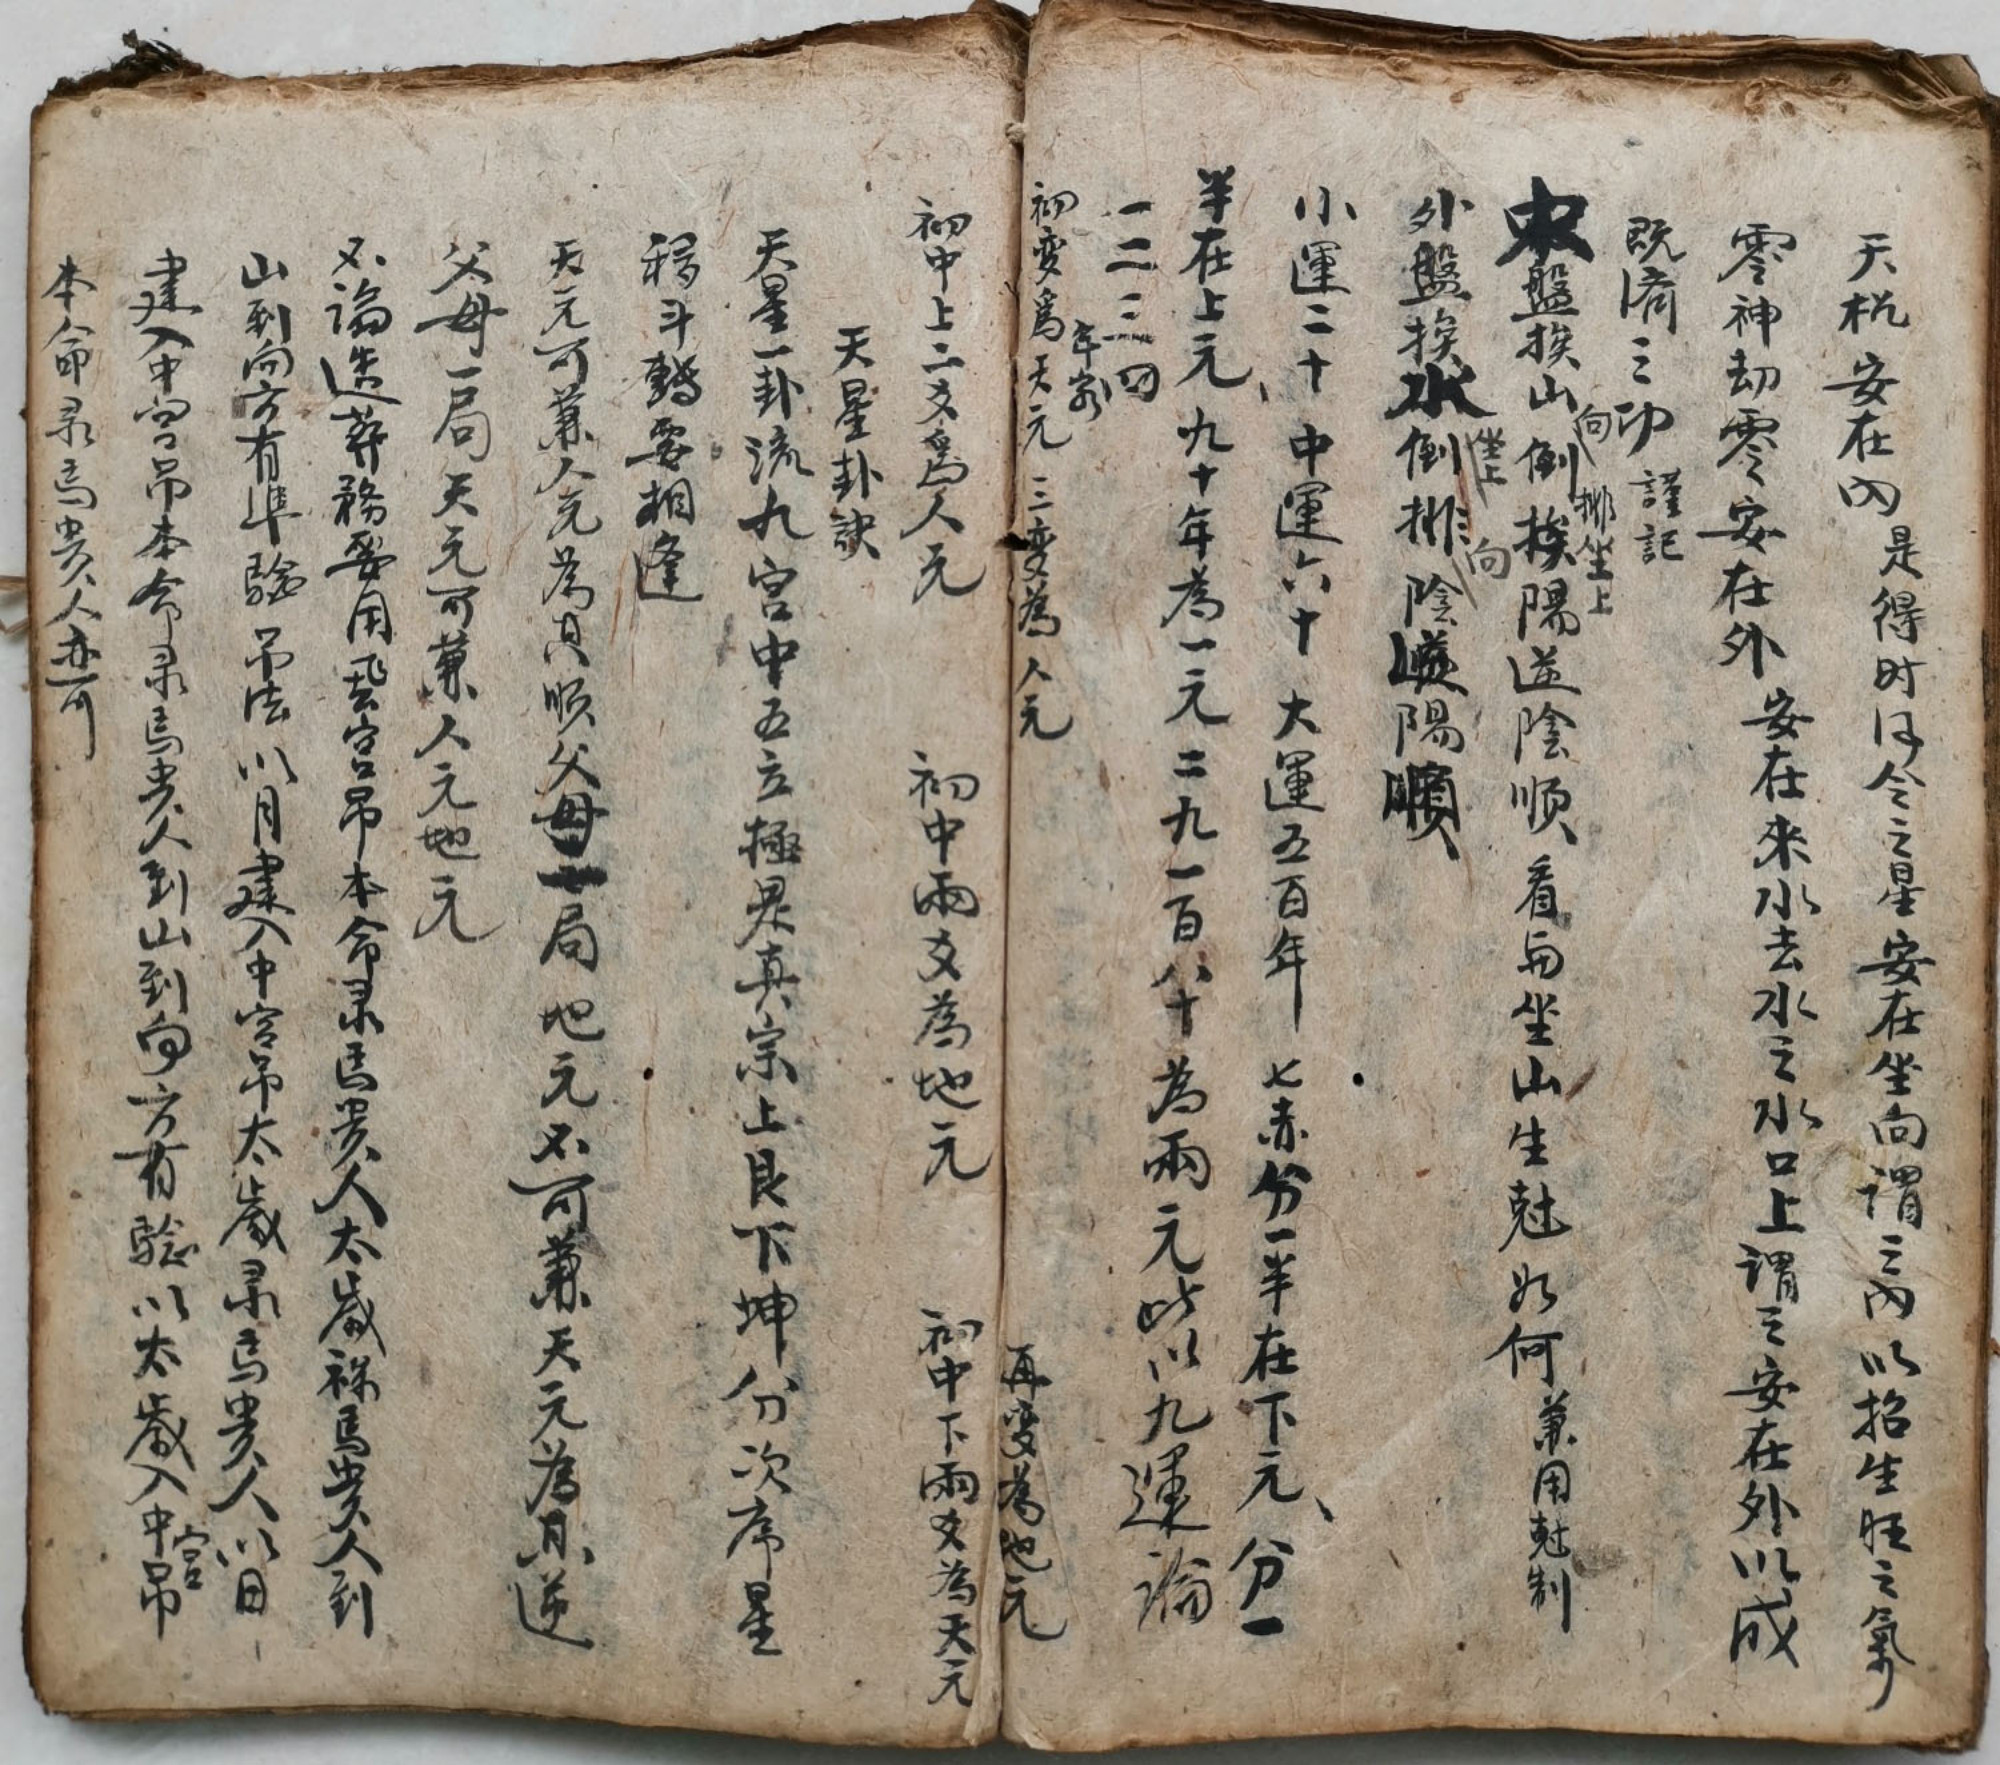 天杭安在内 是得时得令之星安在坐向谓之内以招生旺之氣
零神劫零安在外 安在来水去水之水口上谓之安在外以成
既济之功 謹記
盤挨山倒挨陽逆陰順 看与坐山生尅如何兼用尅制
向 排坐上
外盤挨水倒排陰逆陽順
坐上 向
小運二十 中運六十 大運五百年 七赤分一半在下元、分一
半在上元、九十年為一元二九一百八十為兩元此以九運論
一二三四
初变爲天元 三变為人元 再变為地元
初中上二爻爲人元 初中兩爻為地元 初中下兩爻為天元
天星卦訣
天星一卦流九宫中五立極是真宗上艮下坤分次序星
移斗轉要相逢
天元可兼人元為真順父母一局 地元不可兼天元為逆
父母一局天元可兼人元地元
不論造葬務要用飛宫吊本命录馬贵人太歲禄馬贵人到
山到向方有準驗 吊法以月建入中宫吊太歲录馬贵人以日
建入中宫吊本命录馬贵人到山到向方有驗以太歲入中宫吊
本命录馬贵人亦可